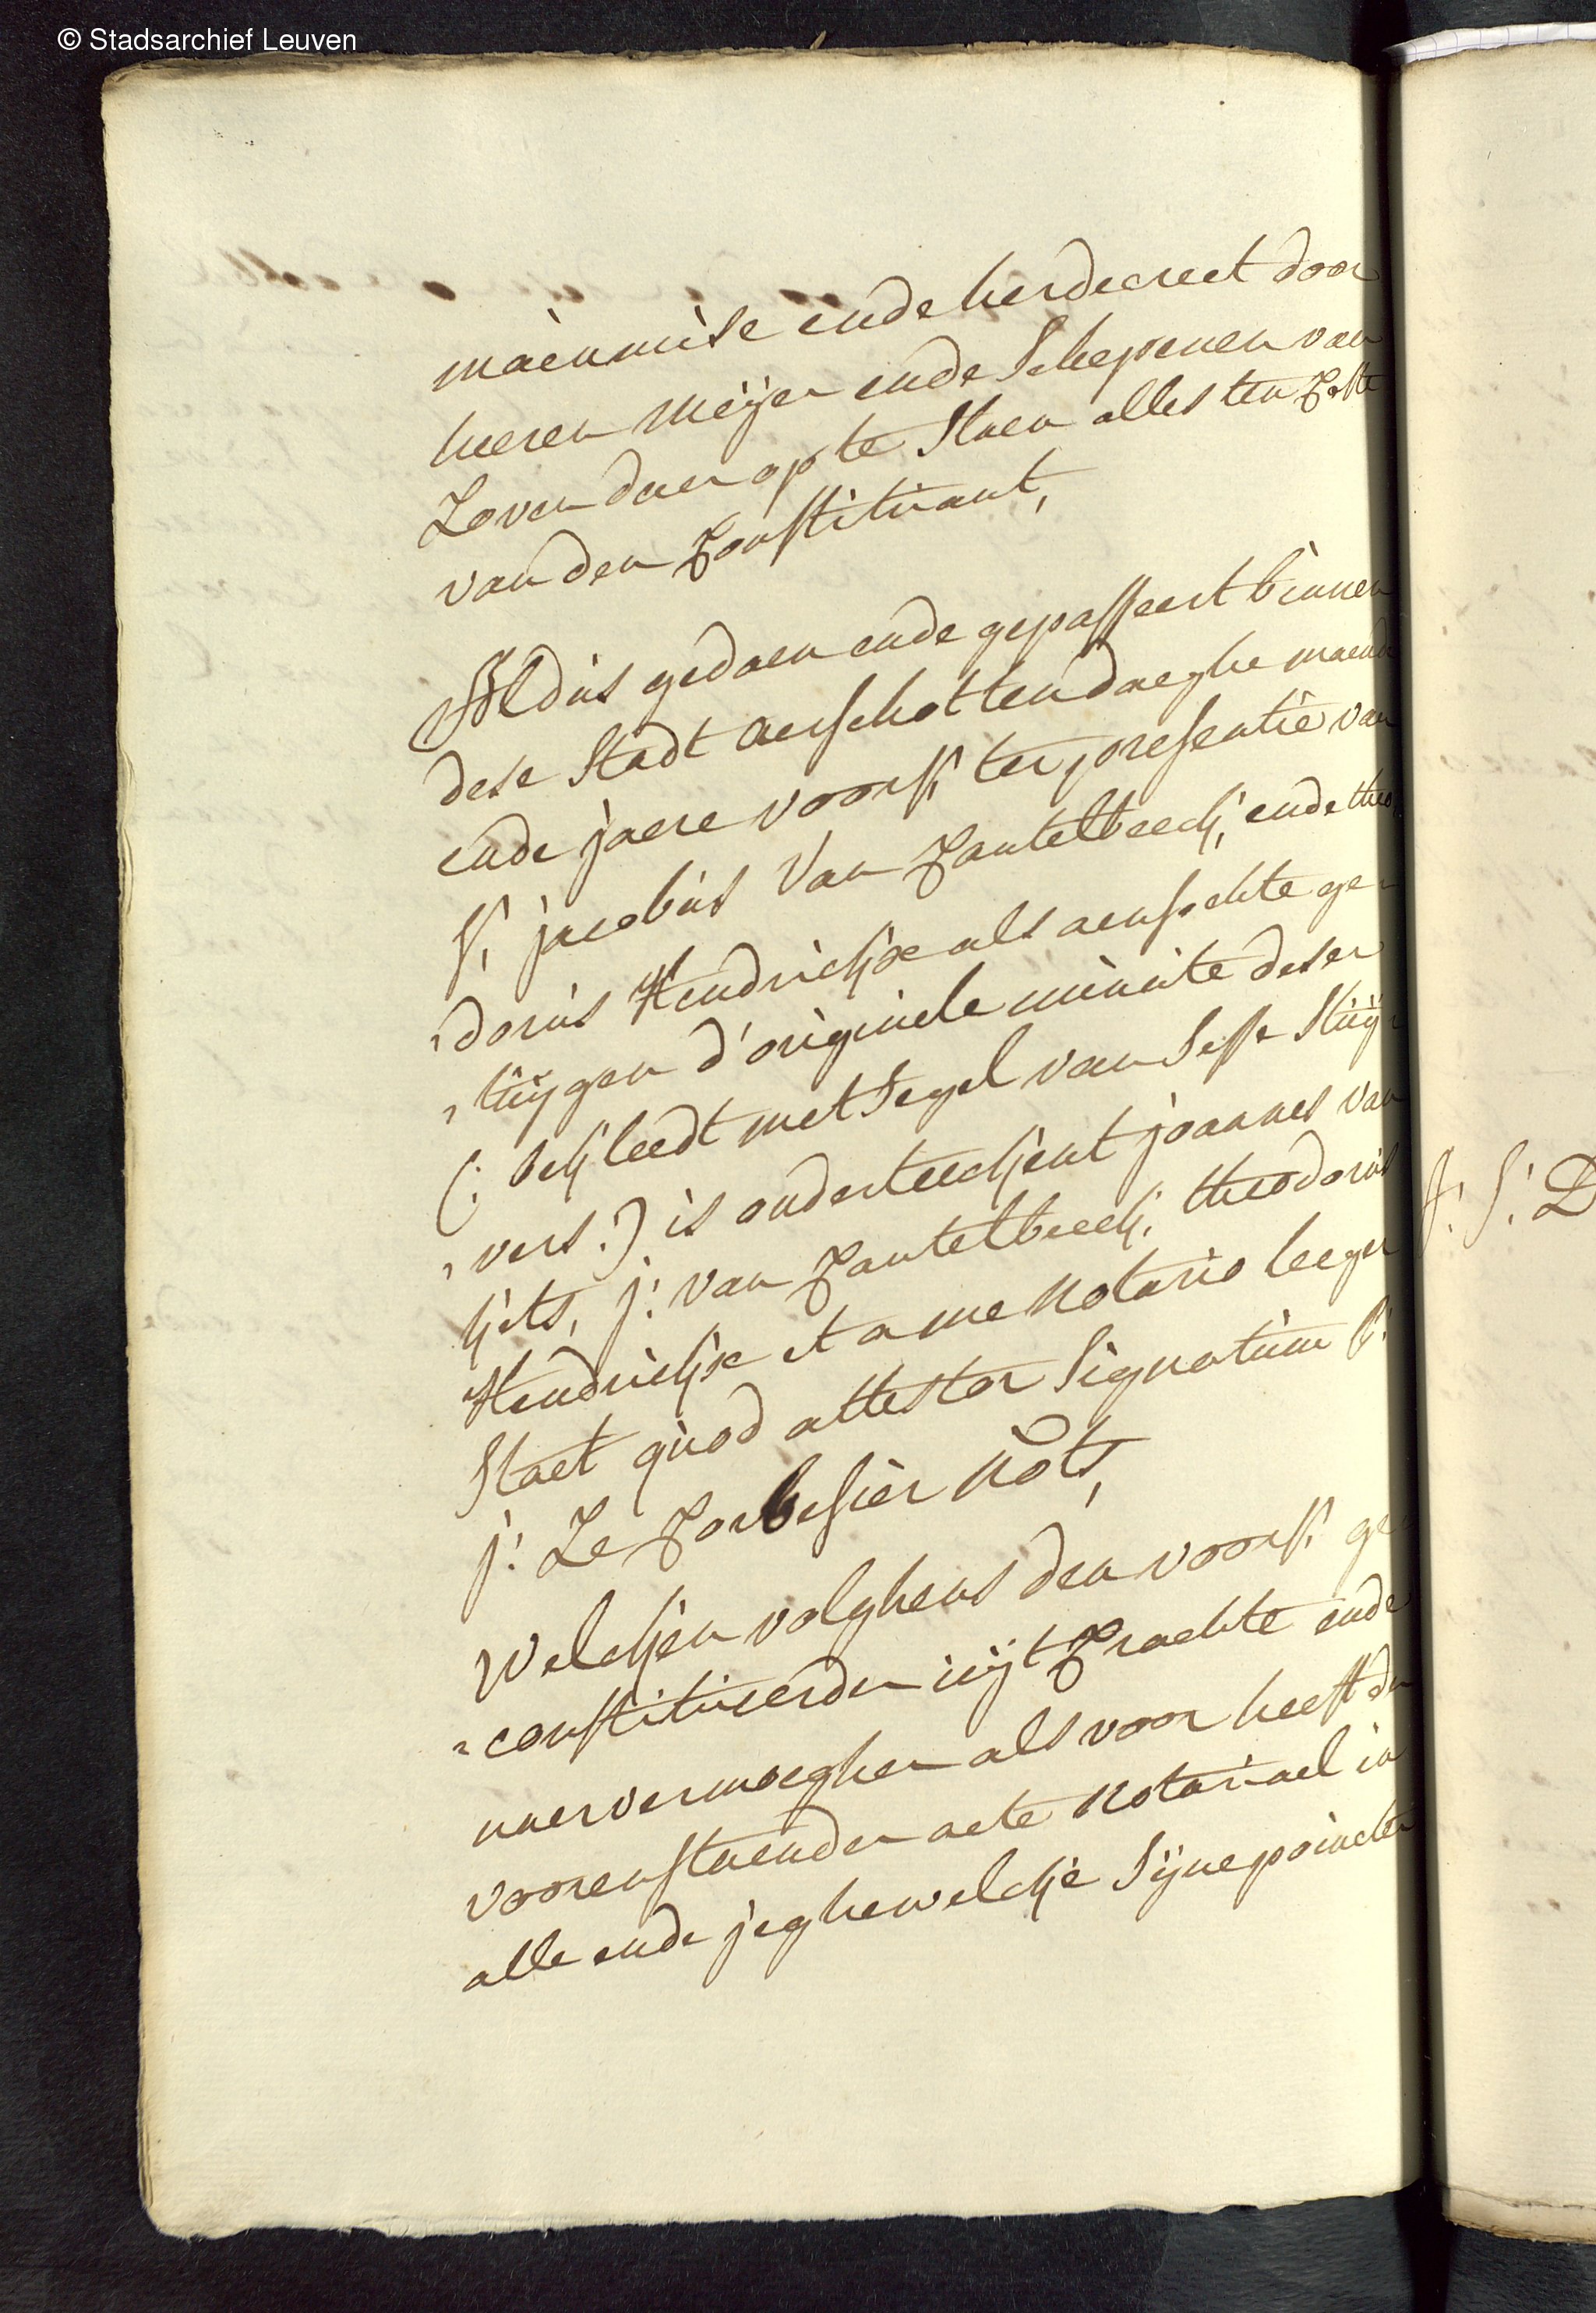 © Stadsarchief Leuven
mainmise ende herdecreet door
heeren Meijer ende Schepenen van
Loven daer op te Slaen alles ten Coste
van den Constituant,
Aldus gedaen ende gepasseert binnen
dese Stadt Aerschot ten daeghe maende
ende jaere voors: ter presentie van
Sr jacobus Van Cantelbeeck, ende theo
,dorus Hendrickx als aensochte ge-
,tuijgen d'originele minute deser
(: bekleedt met Segel van Sesse Stuij-
,vers :) is onderteeckent joannes van
kets, j: van Cantelbeeck, theodorus
Hendrickx et a me Notario leeger
Staet quod attestor Signatum
j: Le Corbesier Nots,
Welcken volghens den voors: ge-
,constitueerden uijt Crachte ende
naervermoeghen als voor heeft den
voorenstaenden acte Notariael in
alle ende jeghewelcke Sijne poincten